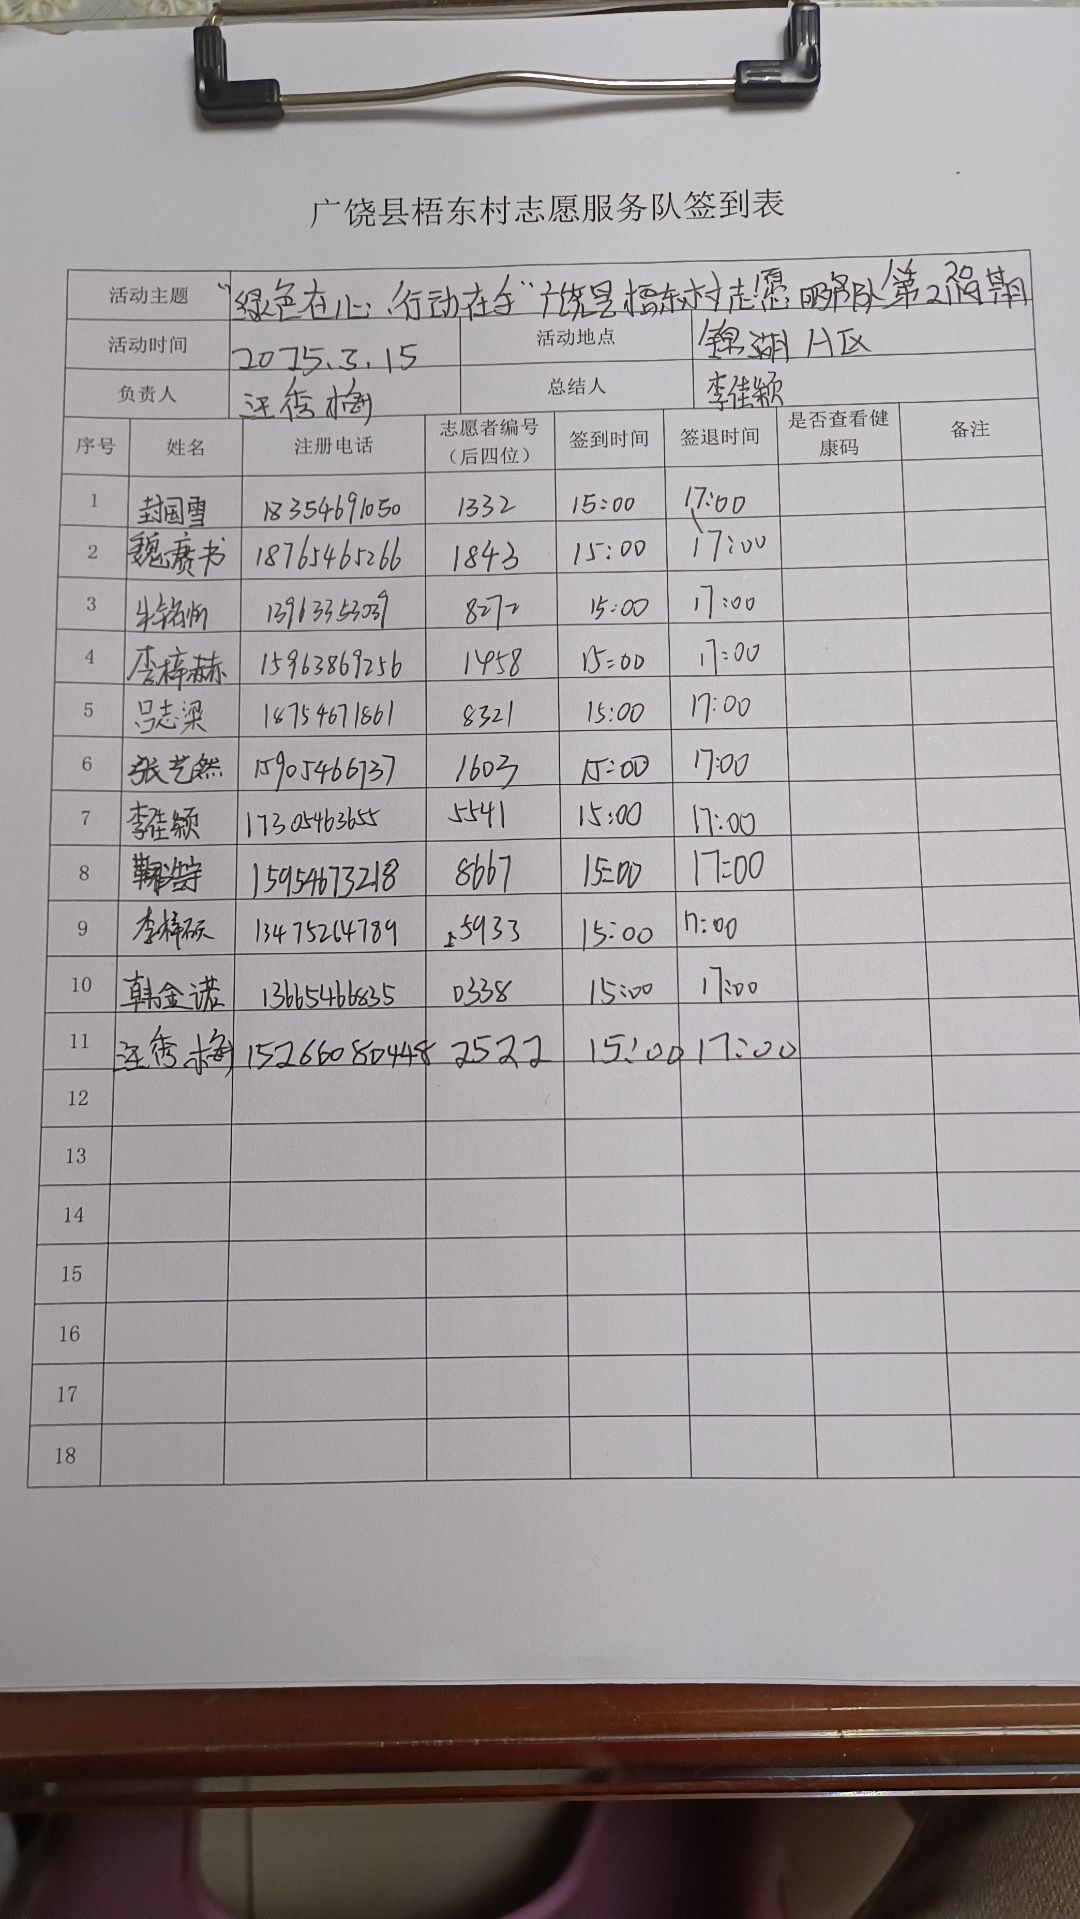 广饶县梧东村志愿服务队签到表
活动主题 "绿色在心,行动在手"广饶县梧东村志愿服务队第 期
活动时间 2025.3.15 活动地点 锦湖片区
负责人 汪秀梅 总结人 李佳颖
序号 姓名 注册电话 志愿者编号(后四位) 签到时间 签退时间 是否查看健康码 备注
1 封国雪 18354691050 1332 15:00 17:00
2 魏赓书 18765465266 1843 15:00 17:00
3 13963353039 8272 15:00 17:00
4 李梓赫 15963869256 1458 15:00 17:00
5 吕志梁 18754671861 8321 15:00 17:00
6 张艺然 15905466737 1603 15:00 17:00
7 李佳颖 17305463655 5541 15:00 17:00
8 15954673218 8667 15:00 17:00
9 李梓硕 13475264789 5933 15:00 17:00
10 韩金诺 13665466835 0338 15:00 17:00
11 汪秀梅 15266080448 2522 15:00 17:00
12
13
14
15
16
17
18